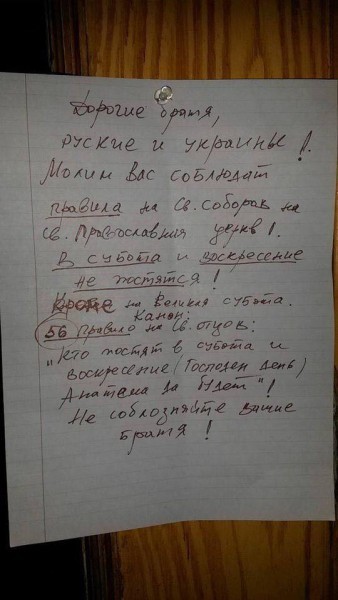 Дорогие братя,
руские и украины!
Молим Вас соблюдат
правила на Св. Соборов на
Св. Православния церкв!
В субота и воскресение
не постятся!
Кроме на Великая субота.
Канон:
56 правило на Св. отцов:
"Кто постят в субота и
воскресение (Господен день)
Анатема да будет"!
Не соблозняйте вание
братя!